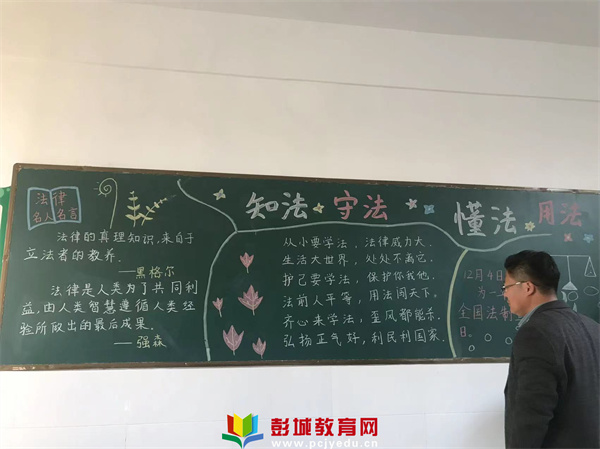 法律
名人名言
法律的真理知识,来自于
立法者的教养.
——黑格尔
法律是人类为了共同利
益,由人类智慧遵循人类经
验所做出的最后成果。
——强森
知法 守法 懂法 用法
从小要学法,法律威力大.
生活大世界,处处不离它.
护己要学法,保护你我他,
法前人平等,用法闯天下。
齐心来学法,歪风都能杀.
弘扬正气好,利民利国家.
12月4日
为
全国法制
日。
彭城教育网
www.pcjyedu.cn